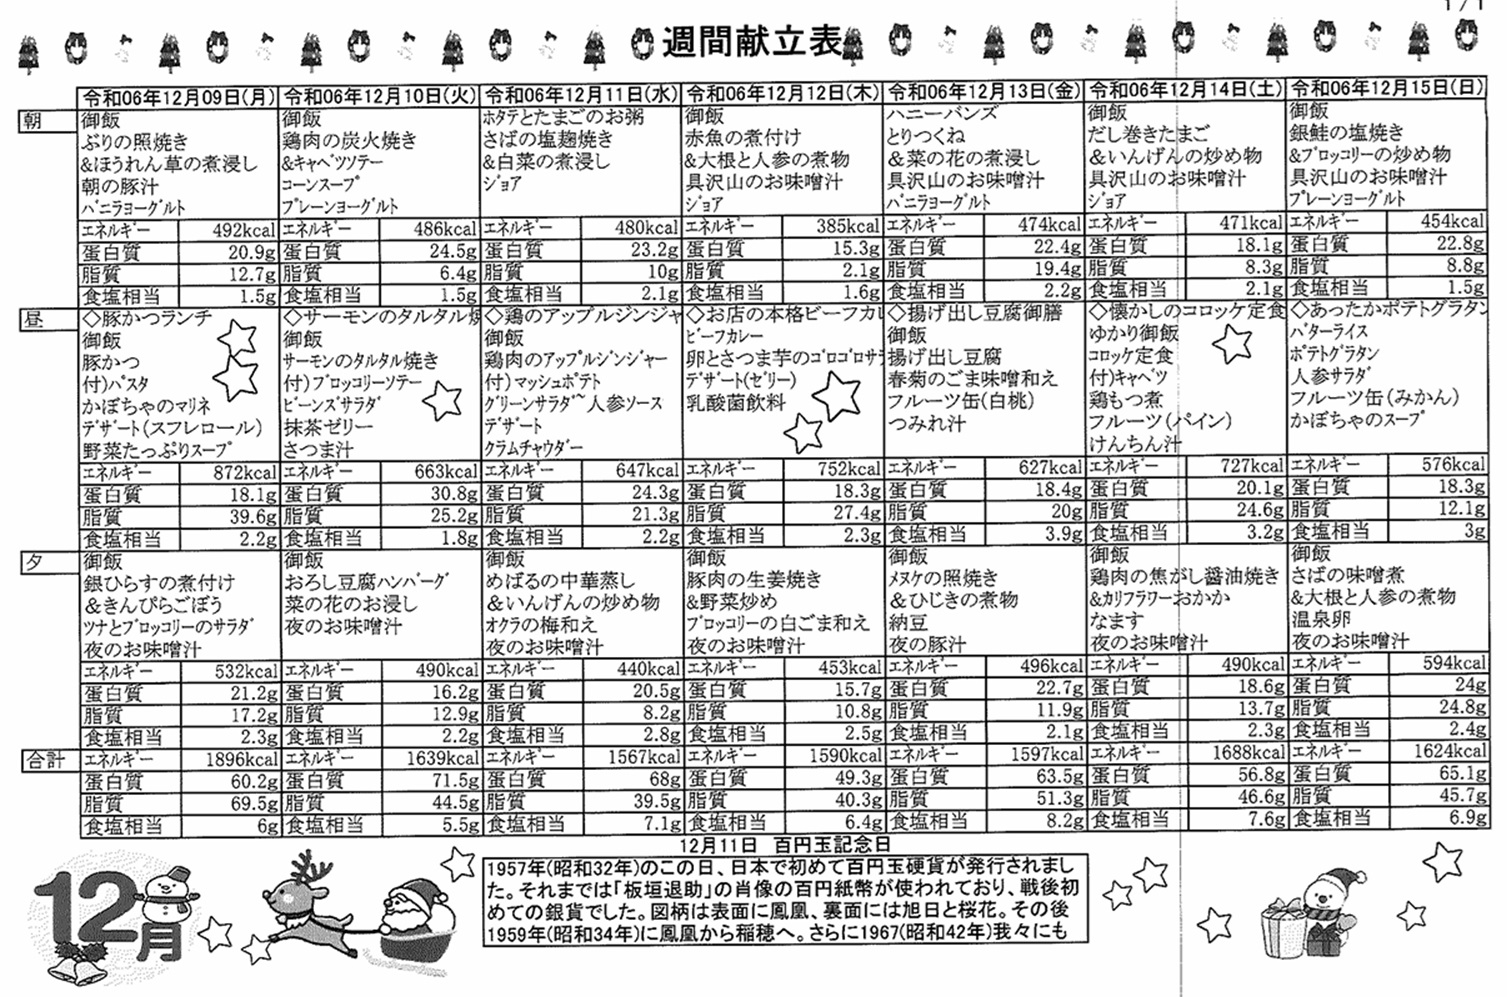 1/1
週間献立表
令和06年12月09日(月) 令和06年12月10日(火) 令和06年12月11日(水) 令和06年12月12日(木) 令和06年12月13日(金) 令和06年12月14日(土) 令和06年12月15日(日)
朝 御飯 御飯 ホタテとたまごのお粥 御飯 ハニーバンズ 御飯 御飯
ぶりの照焼き 鶏肉の炭火焼き さばの塩麹焼き 赤魚の煮付け とりつくね だし巻きたまご 銀鮭の塩焼き
&ほうれん草の煮浸し &キャベツソテー &白菜の煮浸し &大根と人参の煮物 &菜の花の煮浸し &いんげんの炒め物 &ブロッコリーの炒め物
朝の豚汁 コーンスープ ジョア 具沢山のお味噌汁 具沢山のお味噌汁 具沢山のお味噌汁 具沢山のお味噌汁
バニラヨーグルト プレーンヨーグルト ジョア バニラヨーグルト ジョア プレーンヨーグルト
エネルギー 492kcal エネルギー 486kcal エネルギー 480kcal エネルギー 385kcal エネルギー 474kcal エネルギー 471kcal エネルギー 454kcal
蛋白質 20.9g 蛋白質 24.5g 蛋白質 23.2g 蛋白質 15.3g 蛋白質 22.4g 蛋白質 18.1g 蛋白質 22.8g
脂質 12.7g 脂質 6.4g 脂質 10g 脂質 2.1g 脂質 19.4g 脂質 8.3g 脂質 8.8g
食塩相当 1.5g 食塩相当 1.5g 食塩相当 2.1g 食塩相当 1.6g 食塩相当 2.2g 食塩相当 2.1g 食塩相当 1.5g
昼 ◇豚かつランチ ◇サーモンのタルタル焼 ◇鶏のアップルジンジャ ◇お店の本格ビーフカレ ◇揚げ出し豆腐御膳 ◇懐かしのコロッケ定食 ◇あったかポテトグラタン
御飯 御飯 御飯 ビーフカレー 御飯 ゆかり御飯 バターライス
豚かつ サーモンのタルタル焼き 鶏肉のアップルジンジャー 卵とさつま芋のゴロゴロサラ 揚げ出し豆腐 コロッケ定食 ポテトグラタン
付)パスタ 付)ブロッコリーソテー 付)マッシュポテト デザート(ゼリー) 春菊のごま味噌和え 付)キャベツ 人参サラダ
かぼちゃのマリネ ビーンズサラダ グリーンサラダ~人参ソース 乳酸菌飲料 フルーツ缶(白桃) 鶏もつ煮 フルーツ缶(みかん)
デザート(スフレロール) 抹茶ゼリー デザート つみれ汁 フルーツ(パイン) かぼちゃのスープ
野菜たっぷりスープ さつま汁 クラムチャウダー けんちん汁
エネルギー 872kcal エネルギー 663kcal エネルギー 647kcal エネルギー 752kcal エネルギー 627kcal エネルギー 727kcal エネルギー 576kcal
蛋白質 18.1g 蛋白質 30.8g 蛋白質 24.3g 蛋白質 18.3g 蛋白質 18.4g 蛋白質 20.1g 蛋白質 18.3g
脂質 39.6g 脂質 25.2g 脂質 21.3g 脂質 27.4g 脂質 20g 脂質 24.6g 脂質 12.1g
食塩相当 2.2g 食塩相当 1.8g 食塩相当 2.2g 食塩相当 2.3g 食塩相当 3.9g 食塩相当 3.2g 食塩相当 3g
夕 御飯 御飯 御飯 御飯 御飯 御飯 御飯
銀ひらすの煮付け おろし豆腐ハンバーグ めばるの中華蒸し 豚肉の生姜焼き メヌケの照焼き 鶏肉の焦がし醤油焼き さばの味噌煮
&きんぴらごぼう 菜の花のお浸し &いんげんの炒め物 &野菜炒め &ひじきの煮物 &カリフラワーおかか &大根と人参の煮物
ツナとブロッコリーのサラダ 夜のお味噌汁 オクラの梅和え ブロッコリーの白ごま和え 納豆 なます 温泉卵
夜のお味噌汁 夜のお味噌汁 夜のお味噌汁 夜の豚汁 夜のお味噌汁 夜のお味噌汁
エネルギー 532kcal エネルギー 490kcal エネルギー 440kcal エネルギー 453kcal エネルギー 496kcal エネルギー 490kcal エネルギー 594kcal
蛋白質 21.2g 蛋白質 16.2g 蛋白質 20.5g 蛋白質 15.7g 蛋白質 22.7g 蛋白質 18.6g 蛋白質 24g
脂質 17.2g 脂質 12.9g 脂質 8.2g 脂質 10.8g 脂質 11.9g 脂質 13.7g 脂質 24.8g
食塩相当 2.3g 食塩相当 2.2g 食塩相当 2.8g 食塩相当 2.5g 食塩相当 2.1g 食塩相当 2.3g 食塩相当 2.4g
合計 エネルギー 1896kcal エネルギー 1639kcal エネルギー 1567kcal エネルギー 1590kcal エネルギー 1597kcal エネルギー 1688kcal エネルギー 1624kcal
蛋白質 60.2g 蛋白質 71.5g 蛋白質 68g 蛋白質 49.3g 蛋白質 63.5g 蛋白質 56.8g 蛋白質 65.1g
脂質 69.5g 脂質 44.5g 脂質 39.5g 脂質 40.3g 脂質 51.3g 脂質 46.6g 脂質 45.7g
食塩相当 6g 食塩相当 5.5g 食塩相当 7.1g 食塩相当 6.4g 食塩相当 8.2g 食塩相当 7.6g 食塩相当 6.9g
12月11日 百円玉記念日
1957年(昭和32年)のこの日、日本で初めて百円玉硬貨が発行されまし
た。それまでは「板垣退助」の肖像の百円紙幣が使われており、戦後初
めての銀貨でした。図柄は表面に鳳凰、裏面には旭日と桜花。その後
1959年(昭和34年)に鳳凰から稲穂へ。さらに1967(昭和42年)我々にも
12月